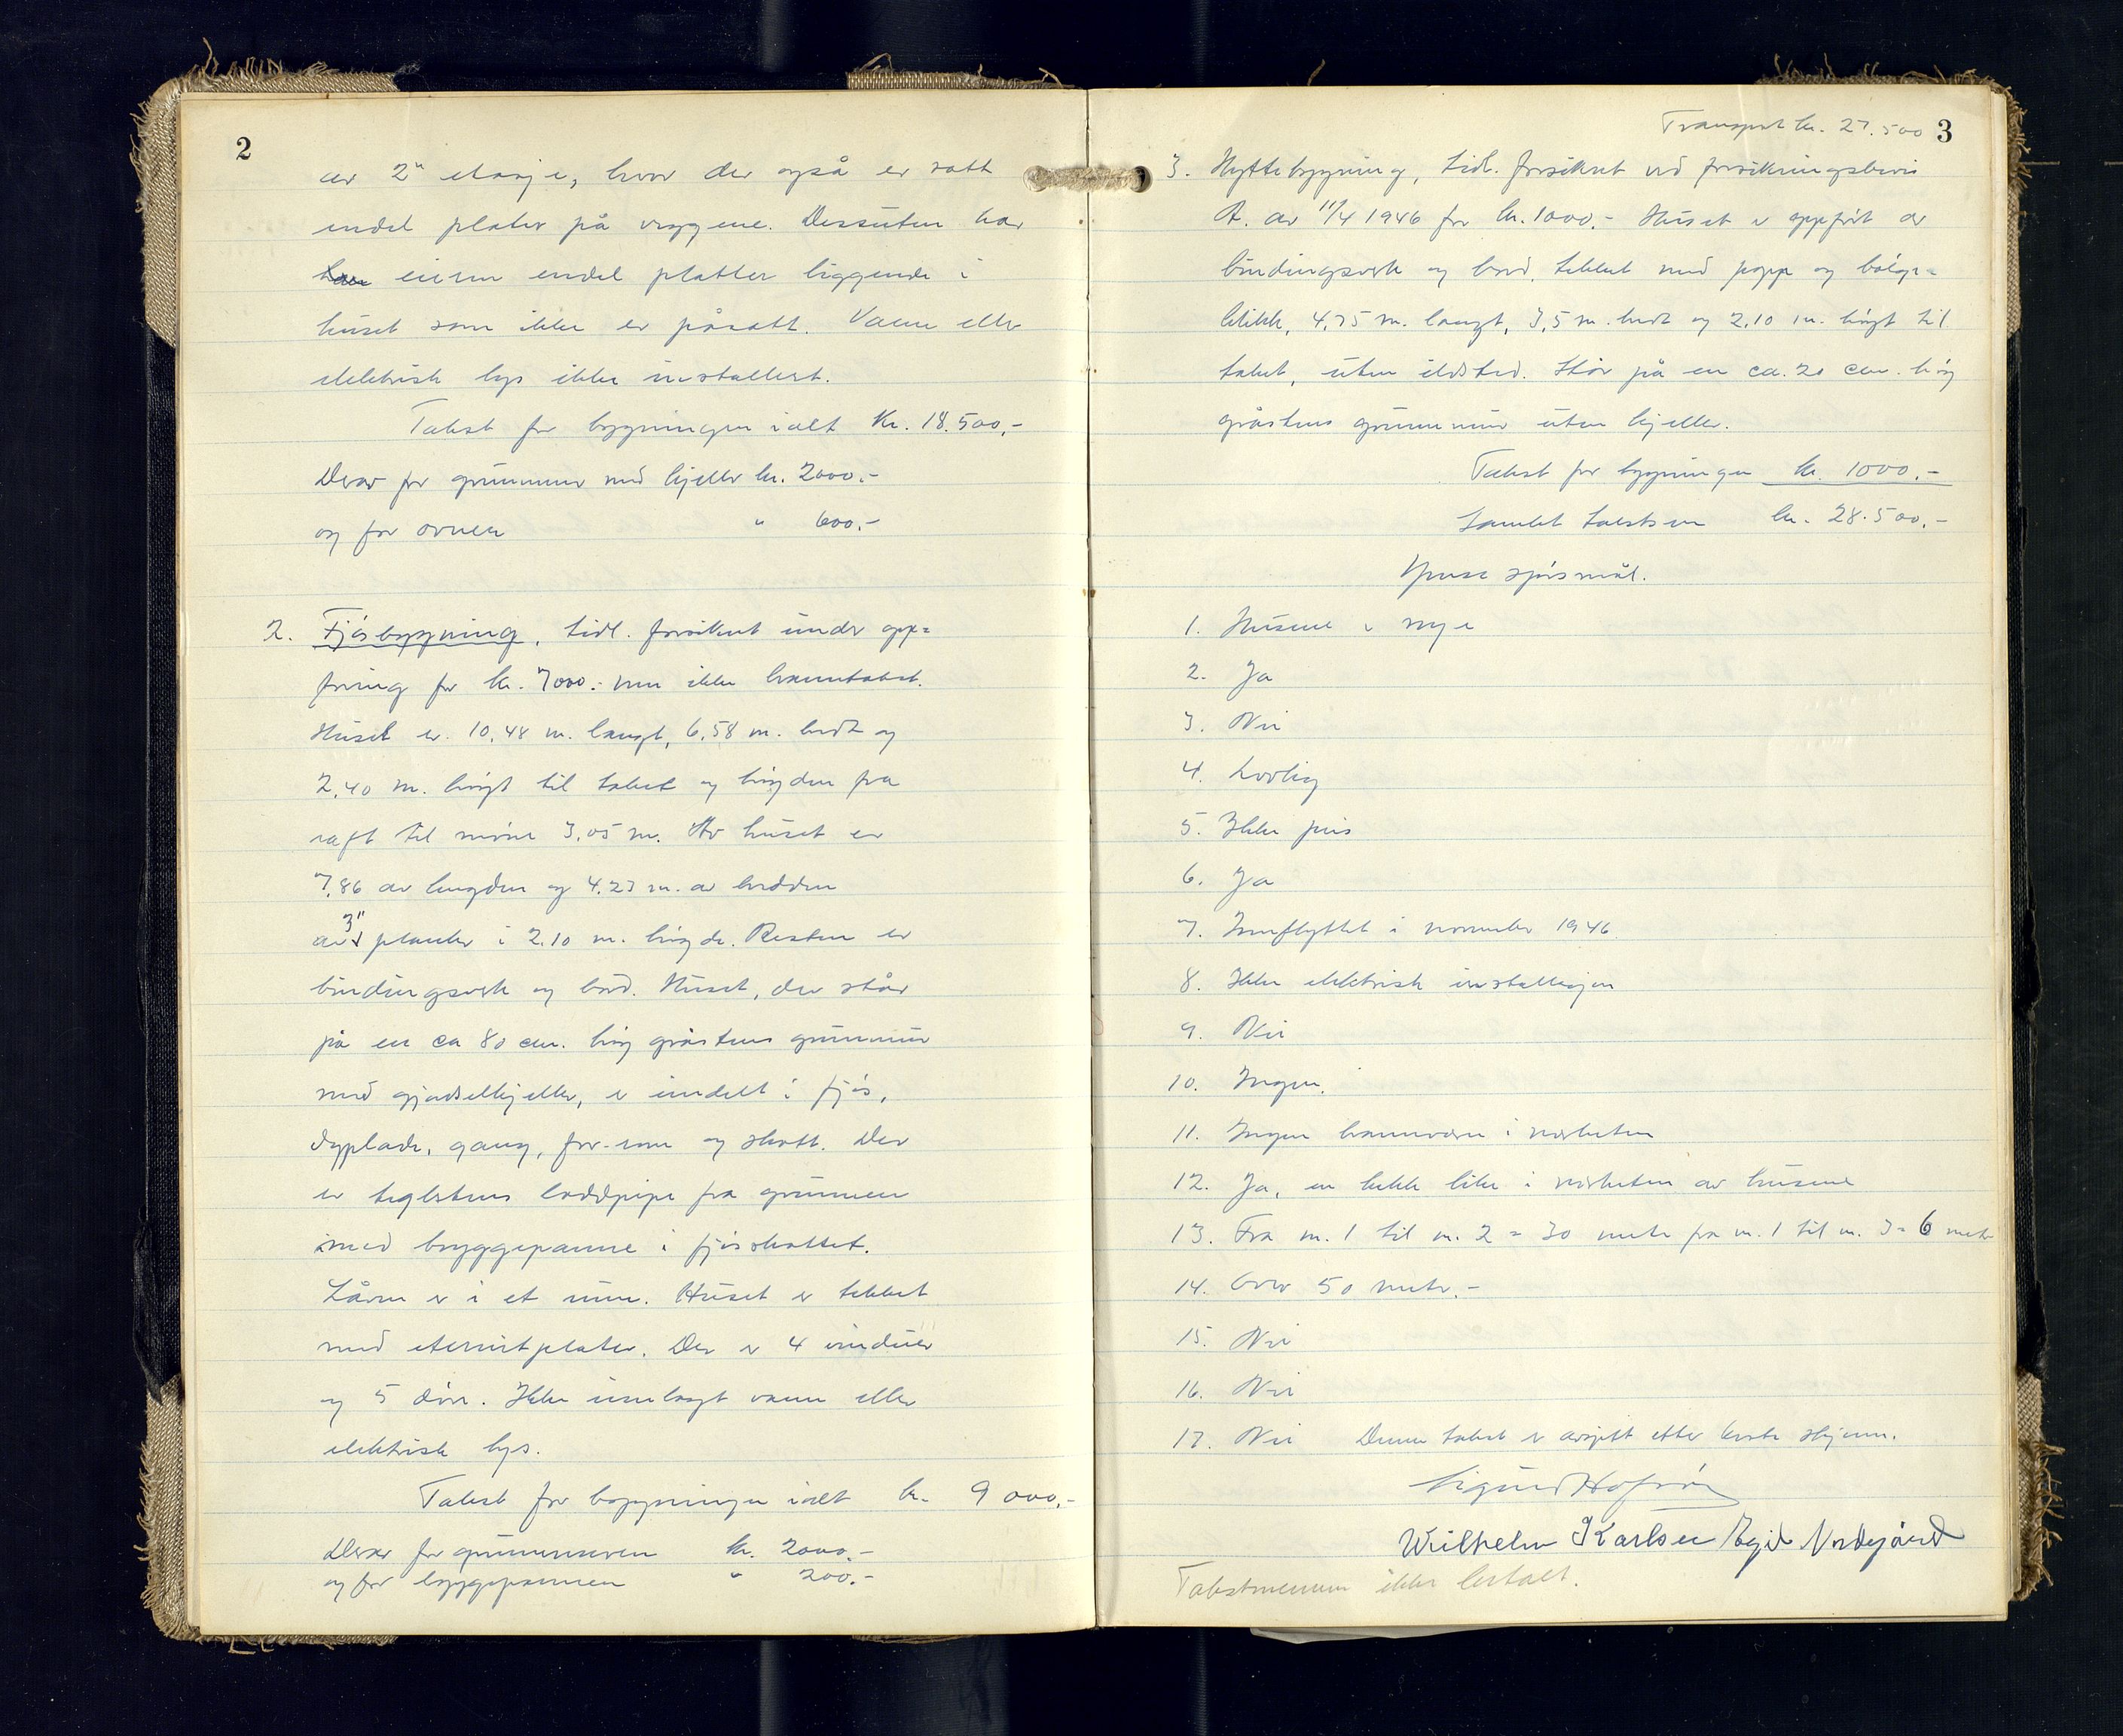 2
av 2" etasje, hvor der også er satt
endel plater på veggene. Dessuten har
har eieren endel platter liggende i
huset som ikke er påsatt. Vann eller
elektrisk lys ikke installert.
Takst for bygningen ialt Kr. 18.500,-
Derav for grunnmur med kjeller kr. 2000.-
og for ovnen " 600.-
2. Fjøsbygning, tidl. forsikret under opp=
føring for kr. 7000.- men ikke branntakst.
Huset er 10,48 m. langt, 6,58 m. bredt og
2,40 m. høigt til taket og høyden fra
raft til møne 3,05 m. Av huset er
7,86 av lengden og 4,23 m. av bredden
av 3" planker i 2.10 m. høyde. Resten er
bindingsverk og bord. Huset, der står
på en ca 80 cm. høy gråstens grunnmur
med gjødselkjeller, er inndelt i fjøs,
 gang, for-rom og skott. Der
er teglstens loddpipe fra grunnen
med bryggepanne i fjøsskottet.
Låven er i et rum. Huset er tekket
med eternitplater. Der er 4 vinduer
og 5 dører. Ikke innlagt vann eller
elektrisk lys.
Takst for bygningen ialt kr. 9000,-
Derav for grunnmuren kr. 2000.-
og for bryggepannen " 200.-
Transport kr. 27.500 3
3. Hyttebygning, tidl. forsikret ved forsikringsbevis
A. av 11/4 1946 for kr. 1000.- Huset er oppført av
bindingsverk og bord, tekket med papp og bølge=
blikk, 4,75 m. langt, 3,5 m. bredt og 2,10 m. høigt til
taket, uten ildsted. Står på en ca. 20 cm. høy
gråstens grunnmur uten kjeller.
Takst for bygningen kr. 1000.-
Samlet takstsum kr. 28.500,-
 spørsmål.
1. Husene er nye
2. Ja
3. Nei
4. Lovlig
5. Ikke pris
6. Ja
7. Innflyttet i november 1946
8. Ikke elektrisk installasjon
9. Nei
10. Ingen.
11. Ingen brannvern i nærheten
12. Ja, en bekk like i nærheten av husene
13. Fra nr. 1 til nr. 2 = 30 meter fra nr. 1 til nr. 3 = 6 meter
14. Over 50 meter.-
15. Nei
16. Nei
17. Nei Denne takst er avgitt etter beste skjønn.
Sigurd Hofsøy
Wilhelm J Karlsen Egil Nordgård
Takstmennene ikke betalt.